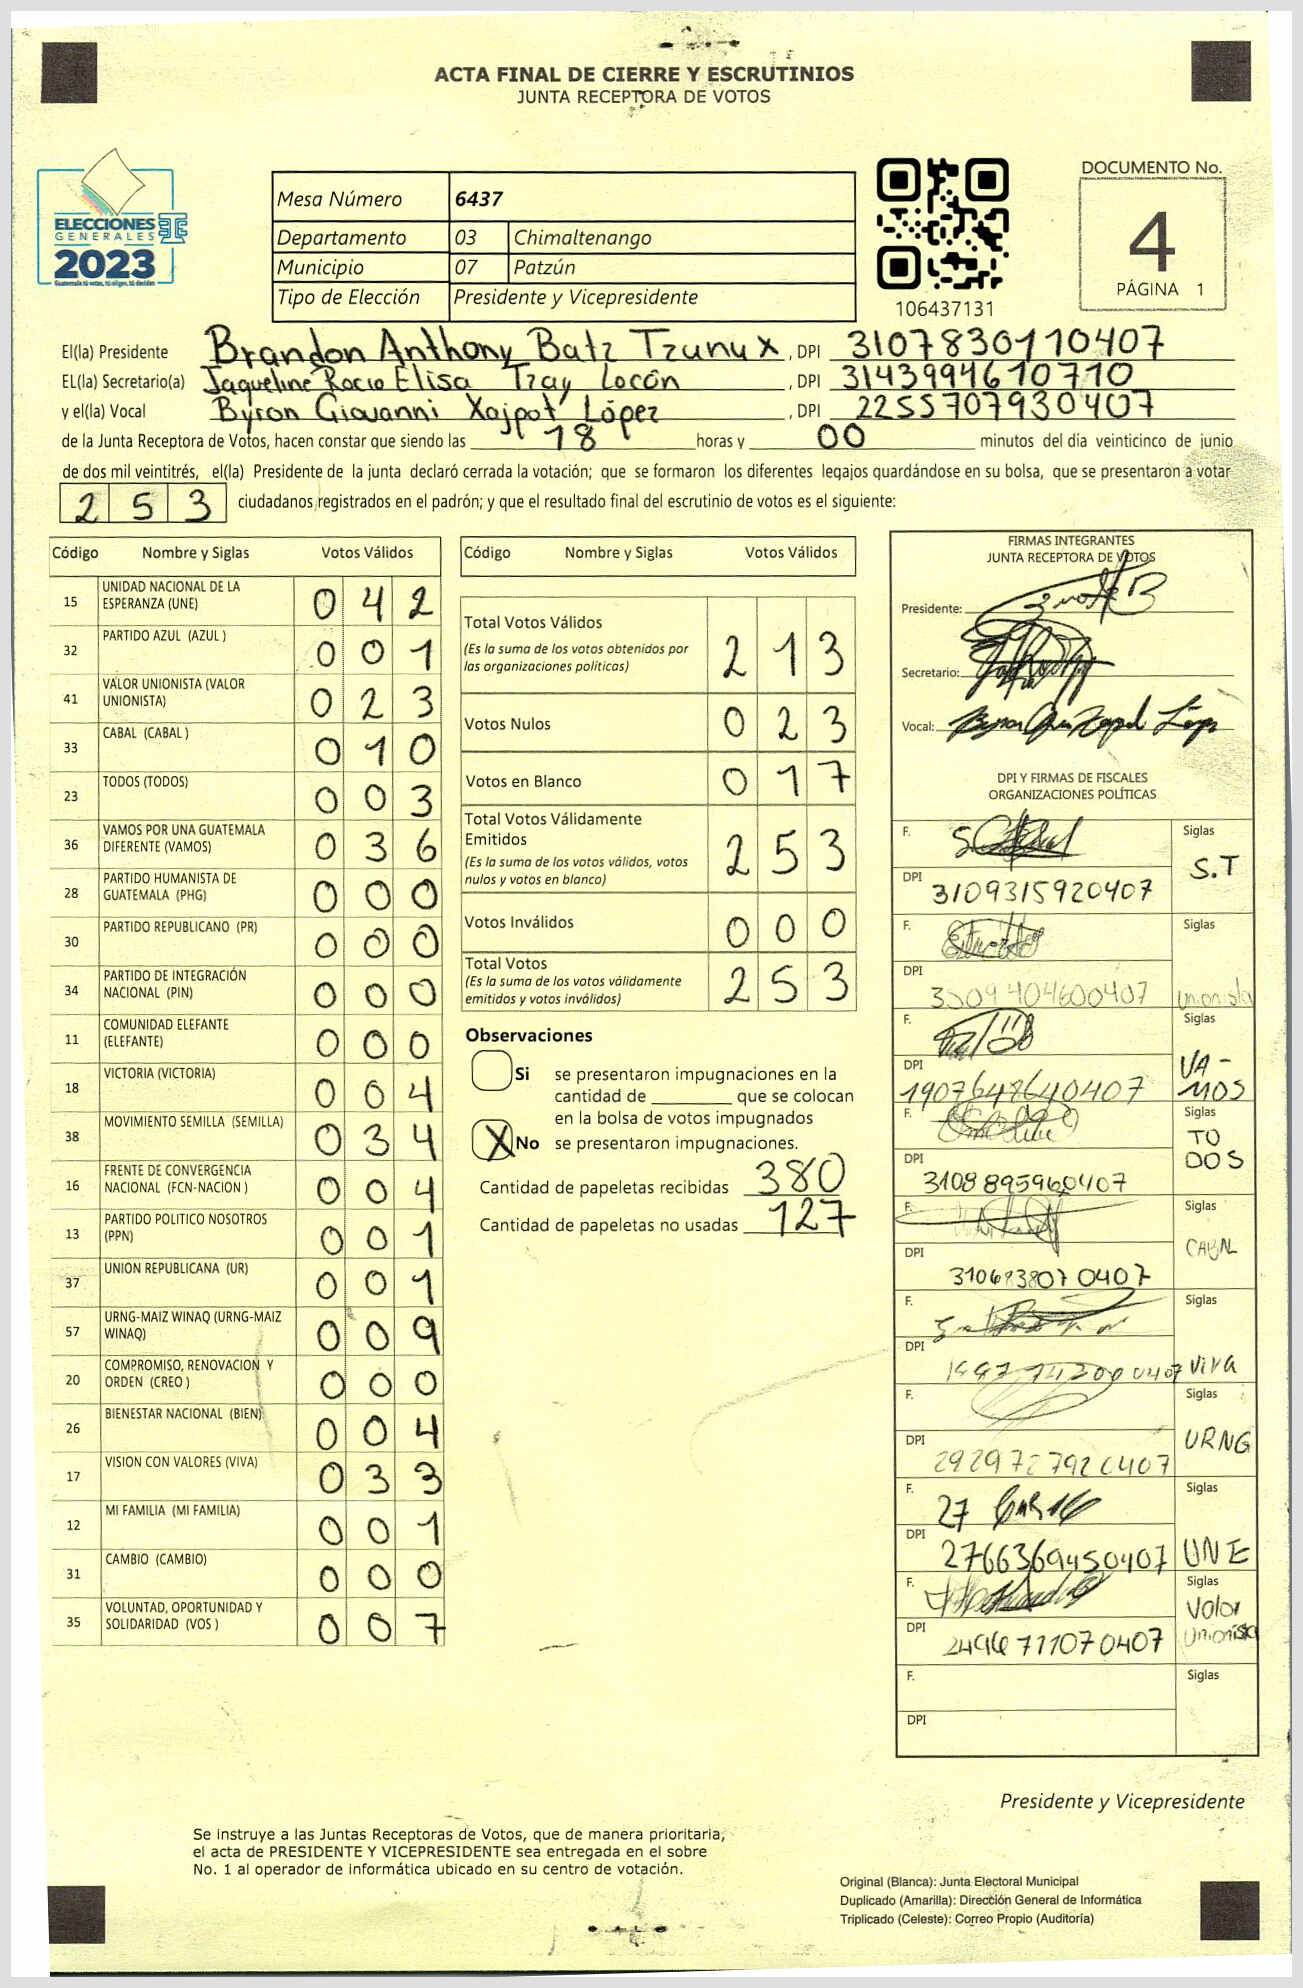 ACTA FINAL DE CIERRE Y ESCRUTINIOS
JUNTA RECEPTORA DE VOTOS
ELECCIONES
GENERALES
2023
Guatemala tú votas, tú eliges, tú decides
Mesa Número 6437
Departamento 03 Chimaltenango
Municipio 07 Patzún
Tipo de Elección Presidente y Vicepresidente
106437131
DOCUMENTO No.
4
PÁGINA 1
El(la) Presidente Brandon Anthony Batz Tzunux, DPI 3107830110407
EL(la) Secretario(a) Jaqueline Rocio Elisa Tzay Locón, DPI 3143994610710
y el(la) Vocal Byron Giovanni Xajpot López, DPI 2255707930407
de la Junta Receptora de Votos, hacen constar que siendo las 18 horas y 00 minutos del día veinticinco de junio
de dos mil veintitrés, el(la) Presidente de la junta declaró cerrada la votación; que se formaron los diferentes legajos guardándose en su bolsa, que se presentaron a votar
253 ciudadanos registrados en el padrón; y que el resultado final del escrutinio de votos es el siguiente:
Código Nombre y Siglas Votos Válidos
15 UNIDAD NACIONAL DE LA ESPERANZA (UNE) 042
32 PARTIDO AZUL (AZUL ) 001
41 VALOR UNIONISTA (VALOR UNIONISTA) 023
33 CABAL (CABAL ) 010
23 TODOS (TODOS) 003
36 VAMOS POR UNA GUATEMALA DIFERENTE (VAMOS) 036
28 PARTIDO HUMANISTA DE GUATEMALA (PHG) 000
30 PARTIDO REPUBLICANO (PR) 000
34 PARTIDO DE INTEGRACIÓN NACIONAL (PIN) 000
11 COMUNIDAD ELEFANTE (ELEFANTE) 000
18 VICTORIA (VICTORIA) 004
38 MOVIMIENTO SEMILLA (SEMILLA) 034
16 FRENTE DE CONVERGENCIA NACIONAL (FCN-NACION ) 004
13 PARTIDO POLITICO NOSOTROS (PPN) 001
37 UNION REPUBLICANA (UR) 001
57 URNG-MAIZ WINAQ (URNG-MAIZ WINAQ) 009
20 COMPROMISO, RENOVACION Y ORDEN (CREO ) 000
26 BIENESTAR NACIONAL (BIEN) 004
17 VISION CON VALORES (VIVA) 033
12 MI FAMILIA (MI FAMILIA) 001
31 CAMBIO (CAMBIO) 000
35 VOLUNTAD, OPORTUNIDAD Y SOLIDARIDAD (VOS ) 007
Código Nombre y Siglas Votos Válidos
Total Votos Válidos 213
(Es la suma de los votos obtenidos por
las organizaciones politicas)
Votos Nulos 023
Votos en Blanco 017
Total Votos Válidamente
Emitidos 253
(Es la suma de los votos válidos, votos
nulos y votos en blanco)
Votos Inválidos 000
Total Votos 253
(Es la suma de los votos válidamente
emitidos y votos inválidos)
Observaciones
Si se presentaron impugnaciones en la
cantidad de ________ que se colocan
en la bolsa de votos impugnados
X No se presentaron impugnaciones.
Cantidad de papeletas recibidas 380
Cantidad de papeletas no usadas 127
FIRMAS INTEGRANTES
JUNTA RECEPTORA DE VOTOS
Presidente:
Secretario:
Vocal:
DPI Y FIRMAS DE FISCALES
ORGANIZACIONES POLÍTICAS
F. Siglas
S.T
DPI 3109315920407
F. Siglas
DPI Unionista
F. Siglas
VA-
MOS
DPI 1907648640407
F. Siglas
TO
DOS
DPI 3108895960407
F. Siglas
CABAL
DPI 3106838070407
F. Siglas
DPI VIVA
F. Siglas
URNG
DPI 2929727920407
F. Siglas
DPI 2766369450407 UNE
F. Siglas
Valor
Unionista
DPI
F. Siglas
DPI
Presidente y Vicepresidente
Se instruye a las Juntas Receptoras de Votos, que de manera prioritaria,
el acta de PRESIDENTE Y VICEPRESIDENTE sea entregada en el sobre
No. 1 al operador de informática ubicado en su centro de votación.
Original (Blanca): Junta Electoral Municipal
Duplicado (Amarilla): Dirección General de Informática
Triplicado (Celeste): Correo Propio (Auditoría)